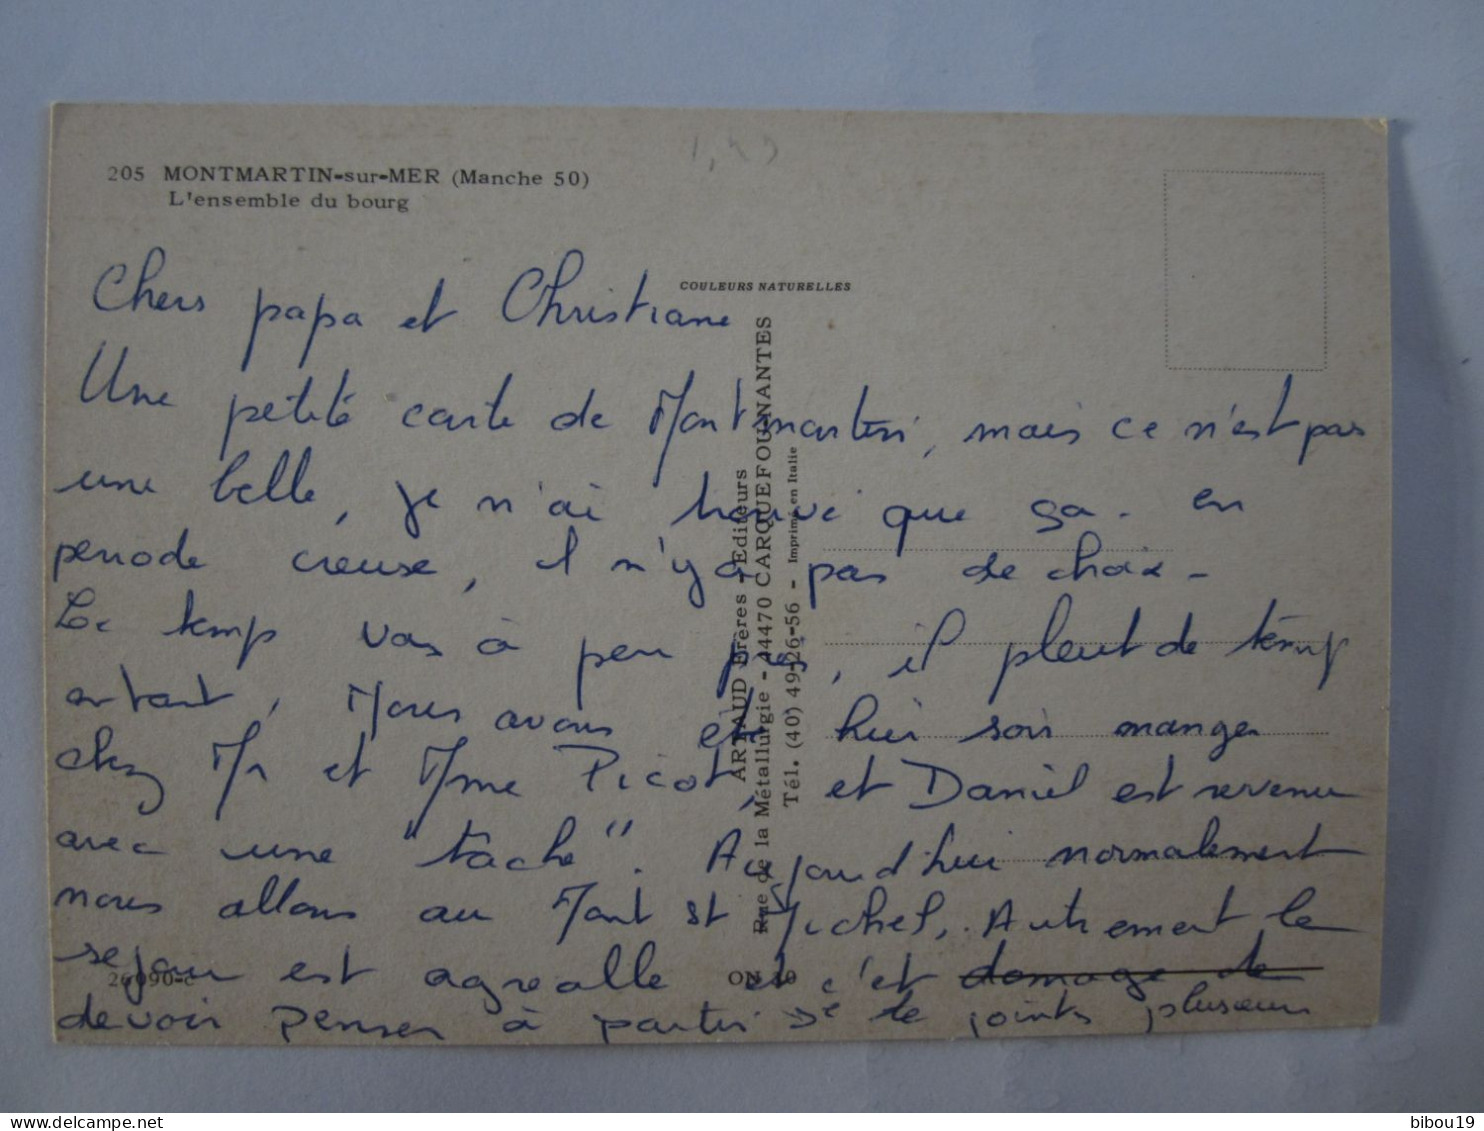 1,
205 MONTMARTIN-sur-MER (Manche 50)
L'ensemble du bourg
COULEURS NATURELLES
Chers papa et Christiane
Une petite carte de Montmartin, mais ce n'est pas
une belle, je n'ai trouvé que ça. en
periode creuse, il n'y a pas de choix -
Le temp vas à peu près, il pleut de temp
antant, Nous avons été hier soir manger
chez Mr et Mme Picot, et Daniel est revenu
avec une "tache". Aujourd'hui normalement
nous allons au Mont st Michel, Autrement le
sejour est agréable et c'et domage de
devoir penser à partir Je te joints plusieur
ARTAUD Frères - Editeurs
Rue de la Métallurgie - 44470 CARQUEFOU-NANTES
Tél. (40) 49-26-56 - Imprimé en Italie
26090-c
ON 40
bibou19